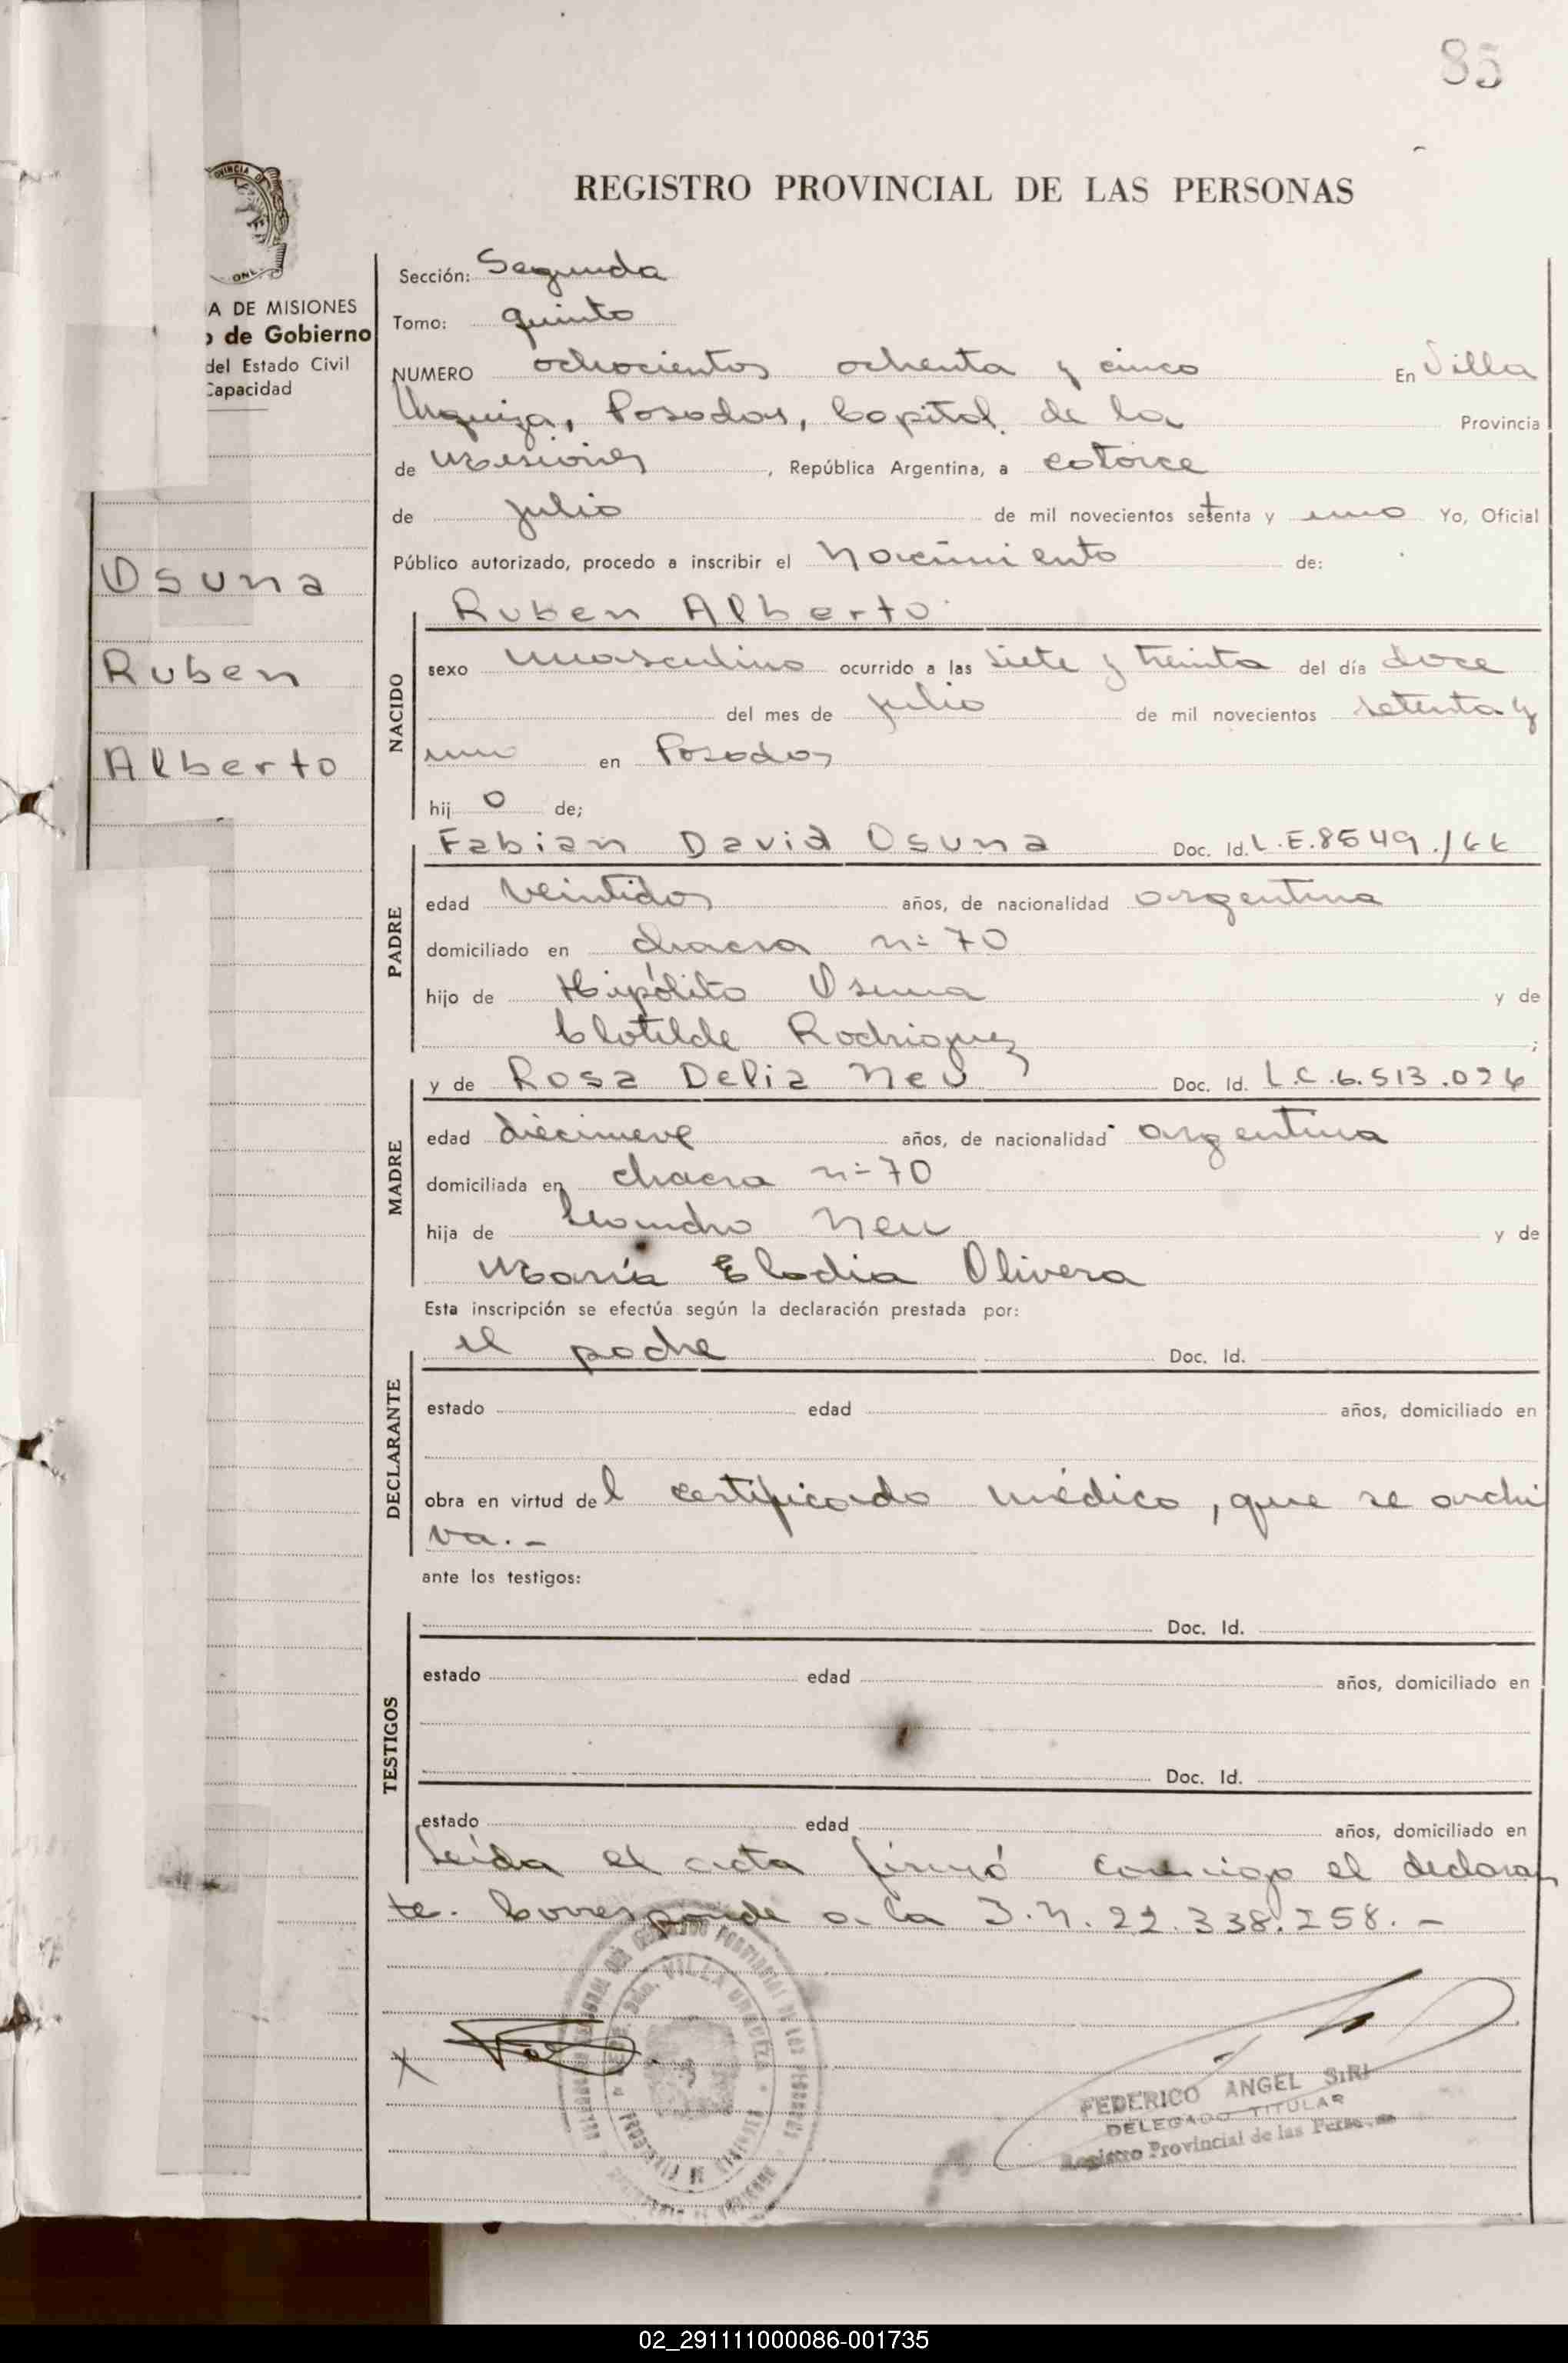 85
REGISTRO PROVINCIAL DE LAS PERSONAS
A DE MISIONES
o de Gobierno
del Estado Civil
Capacidad
Osuna
Ruben
Alberto
Sección: Segunda
Tomo: quinto
NUMERO ochocientos ochenta y cinco En Villa
Urquiza, Posadas, Capital de la Provincia
de Misiones, República Argentina, a catorce
de julio de mil novecientos setenta y uno Yo, Oficial
Público autorizado, procedo a inscribir el nacimiento de:
NACIDO
Ruben Alberto
sexo masculino ocurrido a las siete y treinta del día doce
del mes de julio de mil novecientos setenta y
uno en Posadas
hij o de;
PADRE
Fabian David Osuna Doc. Id. L.E.8549./66
edad veintidos años, de nacionalidad argentina
domiciliado en chacra nº 70
hijo de Hipólito Osuna y de
Clotilde Rodriguez ;
MADRE
y de Rosa Delia Neu Doc. Id. L.C.6.513.026
edad diecinueve años, de nacionalidad argentina
domiciliada en chacra nº 70
hija de Leandro Neu y de
María Elodia Olivera
Esta inscripción se efectúa según la declaración prestada por:
DECLARANTE
el padre Doc. Id.
estado edad años, domiciliado en
obra en virtud del certificado médico, que se archi
va.-
ante los testigos:
TESTIGOS
Doc. Id.
estado edad años, domiciliado en
Doc. Id.
estado edad años, domiciliado en
Leída el acta firmó conmigo el declaran
te. Corresponde a la I.N. 22.338.258.-
VILLA URQUIZA
FEDERICO ANGEL SIRI
DELEGADO TITULAR
Registro Provincial de las Personas
02_291111000086-001735